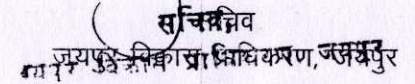 सचिव
जयपुर विकास प्राधिकरण, जयपुर